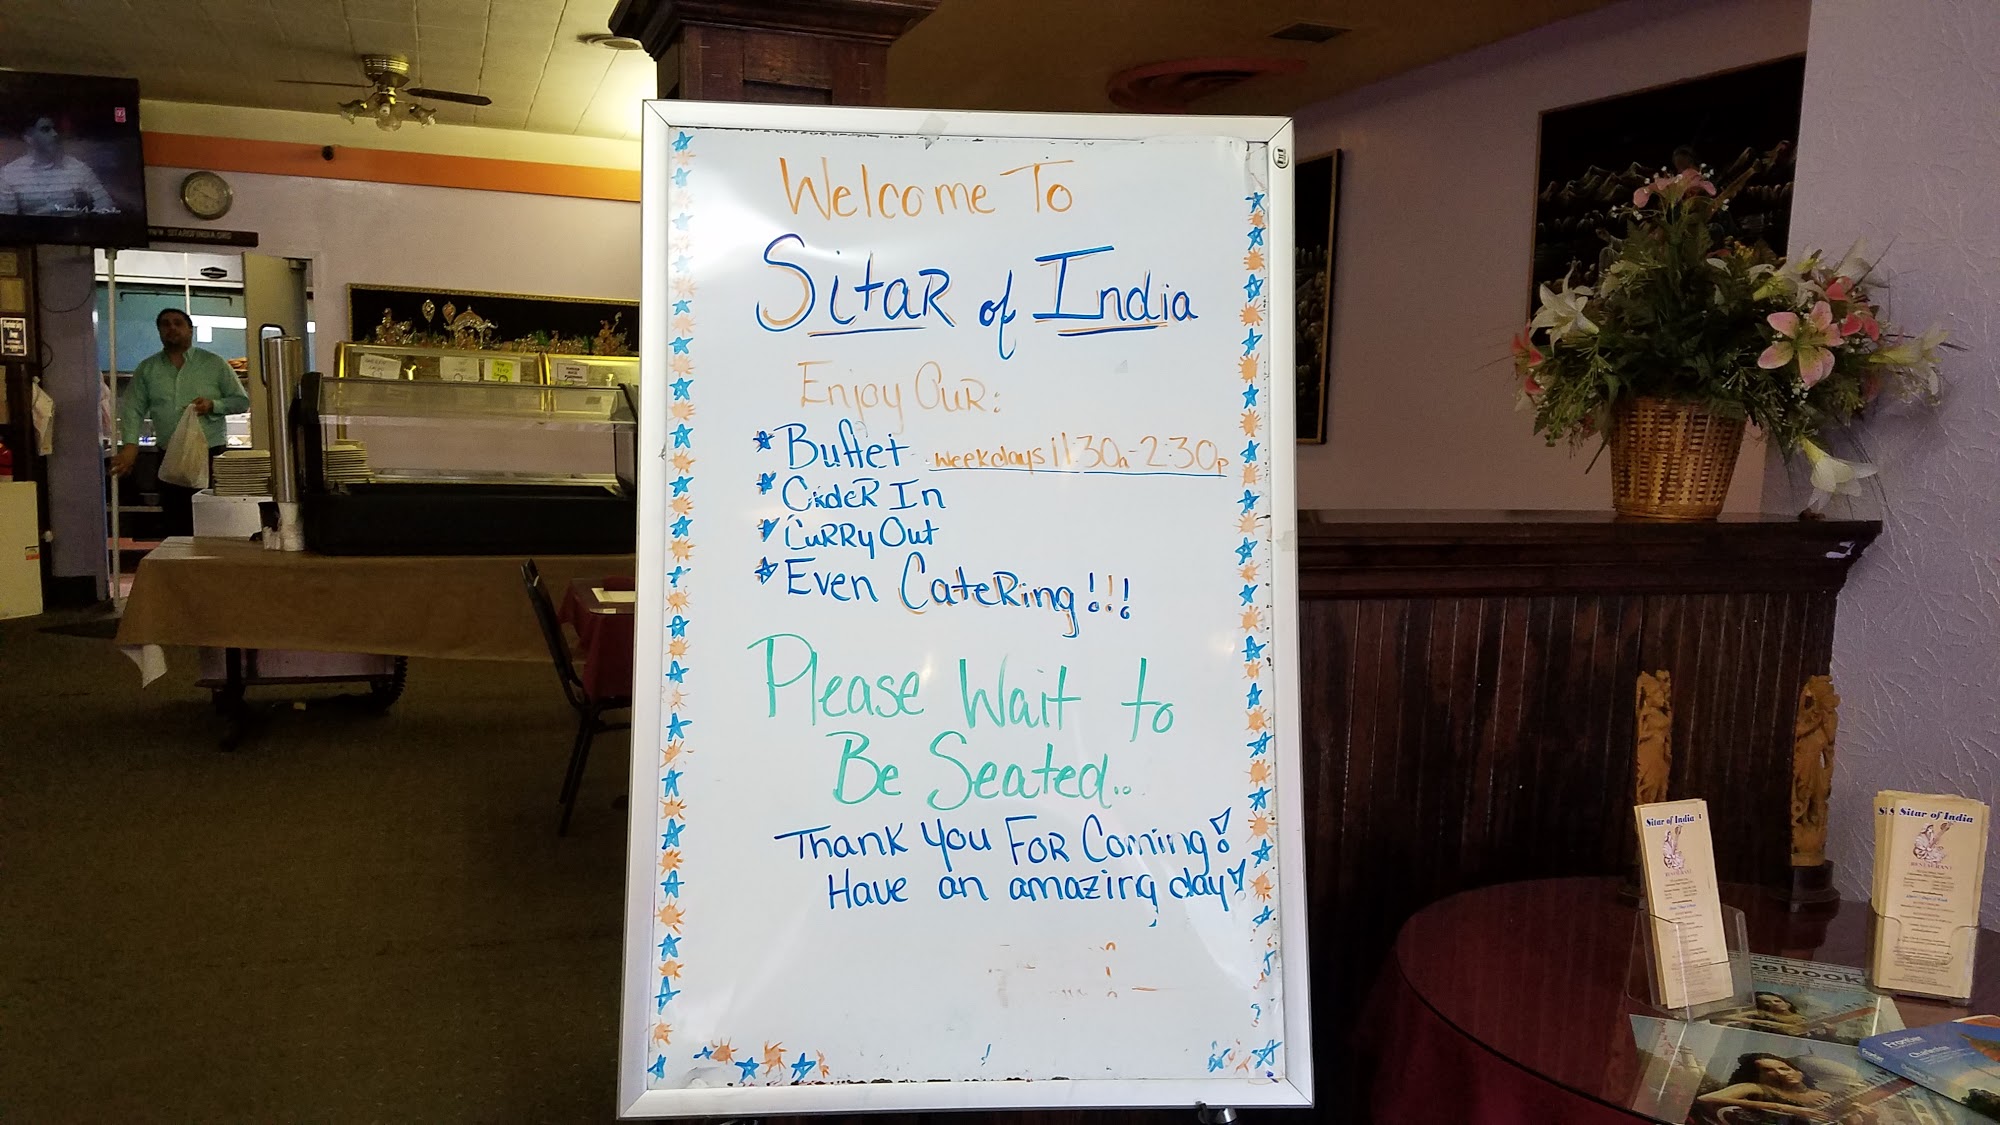 Welcome To
Sitar of India
Enjoy Our:
* Buffet weekdays 11:30a-2:30p
* Order In
* Curry Out
* Even Catering!!!
Please Wait to
Be Seated..
Thank you For Coming!
Have an amazing day!
WWW.SITAROFINDIA.ORG
Sitar of India
Sitar of India
RESTAURANT
cebook
Frontier
Charleston